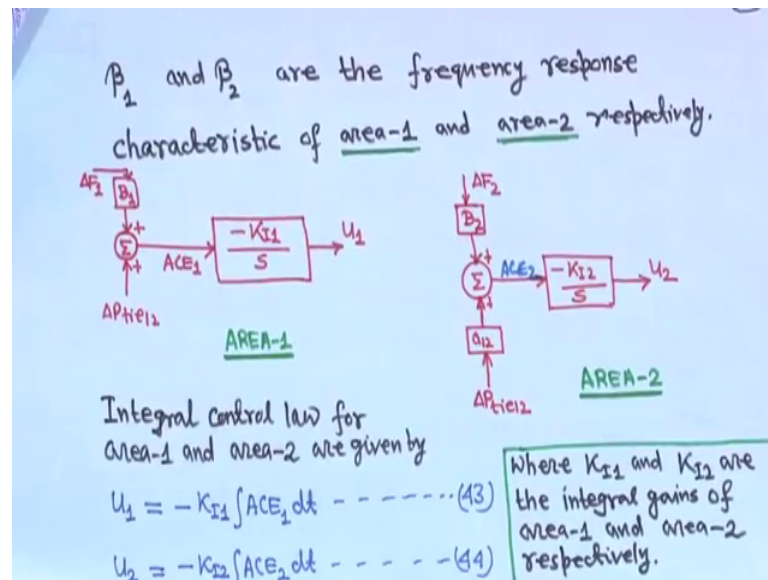 β₁ and β₂ are the frequency response
characteristic of area-1 and area-2 respectively.
ΔF₁
B₁
+
Σ
+
ACE₁
-K_I1
S
U₁
ΔPtie12
AREA-1
ΔF₂
B₂
+
Σ
+
ACE₂
-K_I2
S
U₂
a₁₂
ΔPtie12
AREA-2
Integral control law for
area-1 and area-2 are given by
U₁ = -K_I1 ∫ACE₁ dt - - - - - - - (43)
U₂ = -K_I2 ∫ACE₂ dt - - - - - - (44)
where K_I1 and K_I2 are
the integral gains of
area-1 and area-2
respectively.